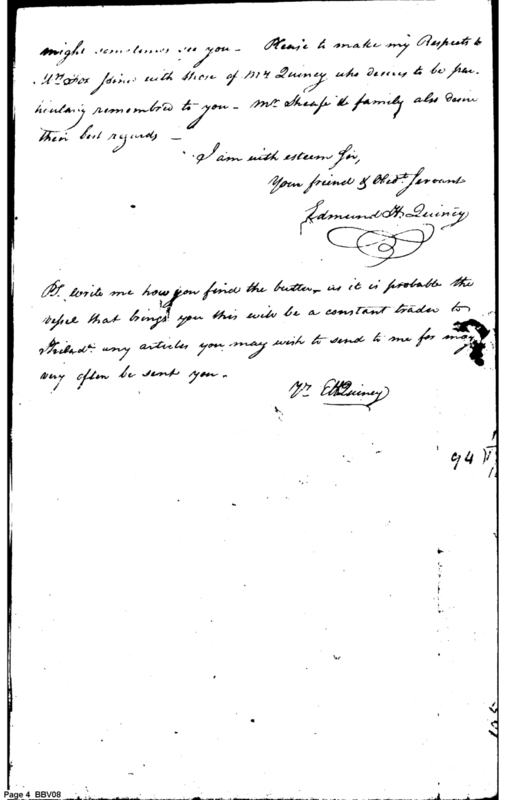 might sometimes see you - Please to make my Respects to
Mr. Fox joind with those of Mr Quincy who desires to be par-
ticularly remembred to you - Mr. Sheafe & family also desire
their best regards -
I am with esteem Sir,
Your friend & Obedt. Servant
Edmund H. Quincy
PS. write me how you find the butter - as it is probable the
vessel that brings you this will be a constant trader to
Philadᵃ. any articles you may wish to send to me for may
very often be sent you -
Yr. EHQuincy
94
Page 4 BBV08